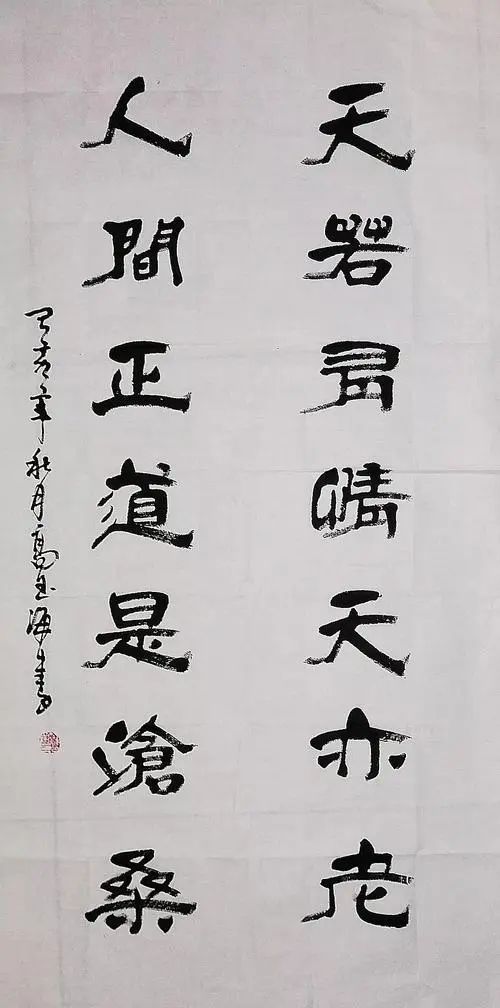 天若有情天亦老
人間正道是滄桑
己亥年秋月高玉海書